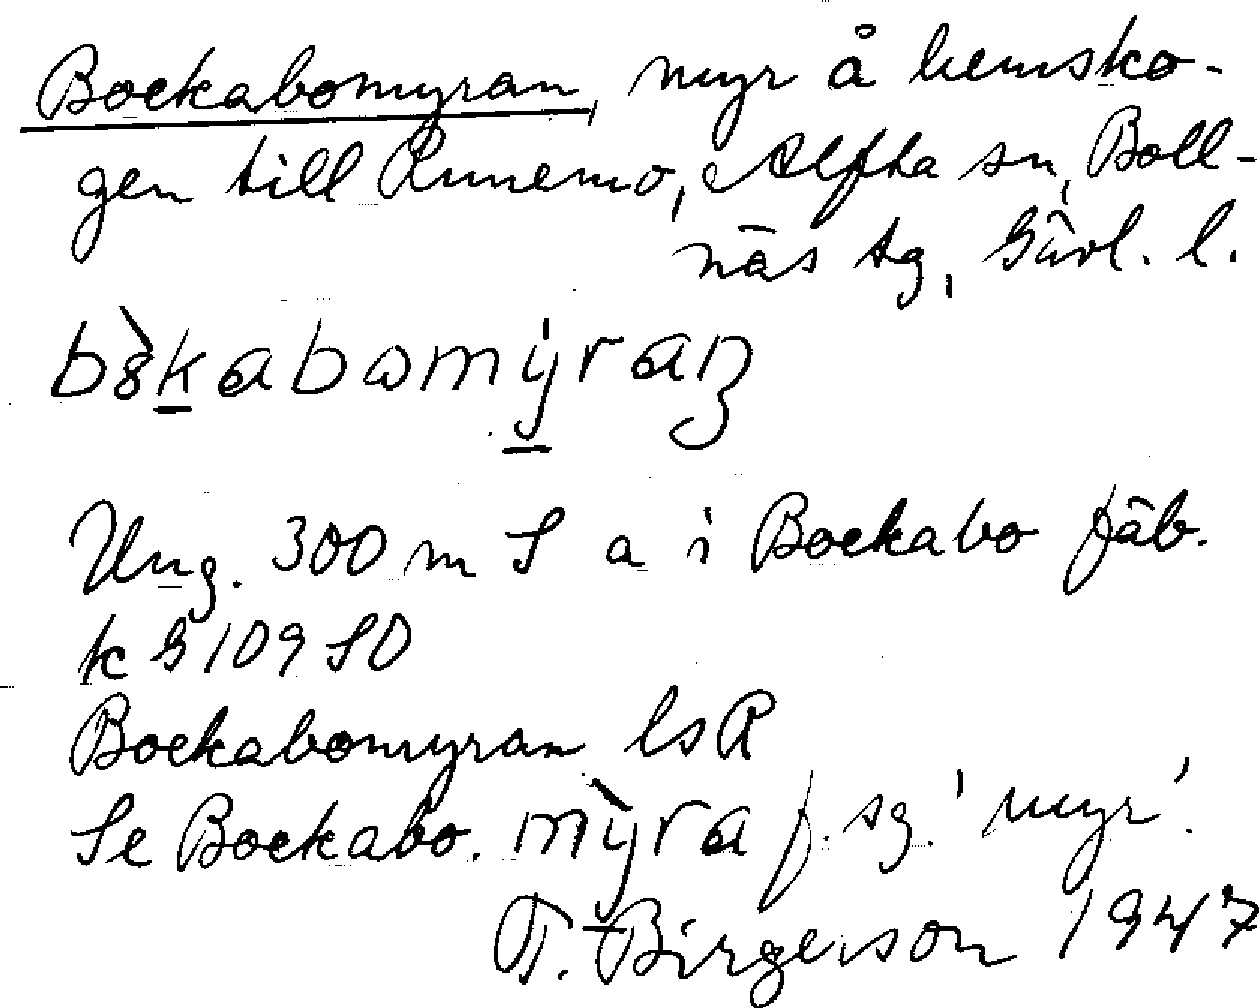 Bockabomyran, myr å hemsko-
gen till Runemo, Alfta sn, Boll-
näs tg, Gävl. l.
bòkabomýran
Ung. 300 m S a i Bockabo fäb.
k G 109 SO
Bockabomyran lsR
Se Bockabo. mỳra f. sg. 'myr'.
T. Birgerson 1947